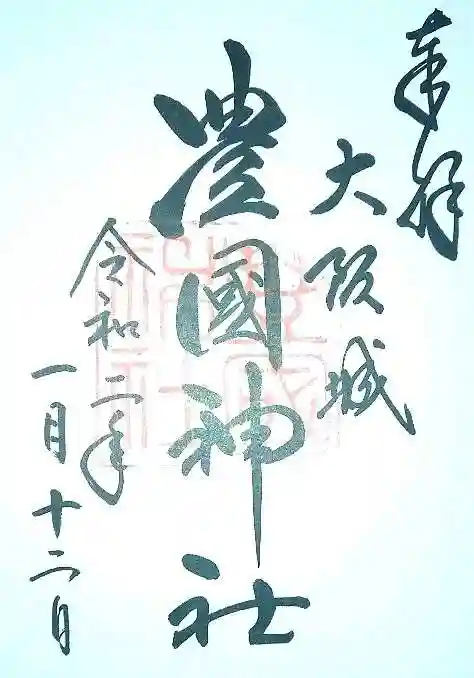 奉拝
大阪城
豊國神社
令和二年
一月十二日